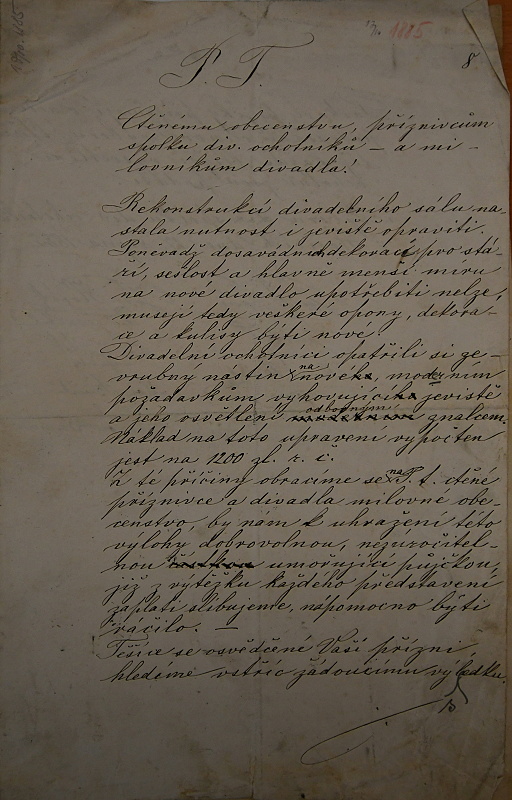 1885
8
P. T.
Ctěnému obecenstvu, příznivcům
spolku div. ochotníků – a mi-
lovníkům divadla!
Rekonstrukcí divadelního sálu na-
stala nutnost i jeviště opraviti.
Poněvadž dosavádních dekorací pro stá-
ří, sešlost a hlavně menší míru
na nové divadlo upotřebiti nelze,
musejí tedy veškeré opony, dekora-
ce a kulisy býti nové.
Divadelní ochotníci opatřili si ge-
vrubný nástin na nové, moderním
požadavkům vyhovující jeviště
a jeho osvětlení odborným znalcem.
Náklad na toto upravení vypočten
jest na 1200 zl. r. č.
Z té příčiny obracíme se na P. t. ctěné
příznivce a divadla milovné obe-
censtvo, by nám k uhražení této
výlohy dobrovolnou, nezúročitel-
nou umořující půjčkou,
již z výtěžku každého představení
zaplatí slibujeme, nápomocno býti
ráčilo. —
Těšíce se osvědčené Vaší přízni,
hledíme vstříc žádoucímu výsledku.